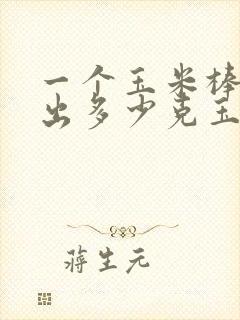 一个玉米棒
出多少克玉
蒋生元